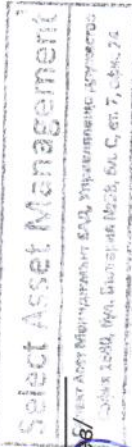 Select Asset Management
Асет Мениджмънт ЕАД, Управляващо дружество
София 1280, бул. България №58, бл. С, ет. 7, офис 24